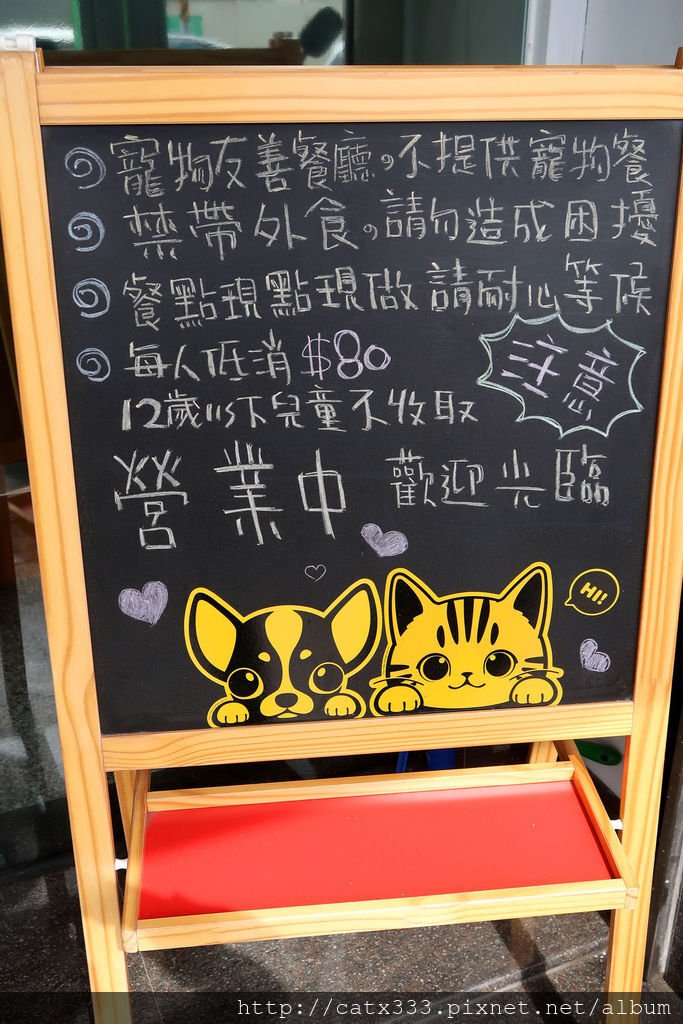 寵物友善餐廳。不提供寵物餐
禁帶外食。請勿造成困擾
餐點現點現做 請耐心等候
每人低消 $80
注意
12歲以下兒童不收取
營業中 歡迎光臨
HI!!
http://catx333.pixnet.net/album